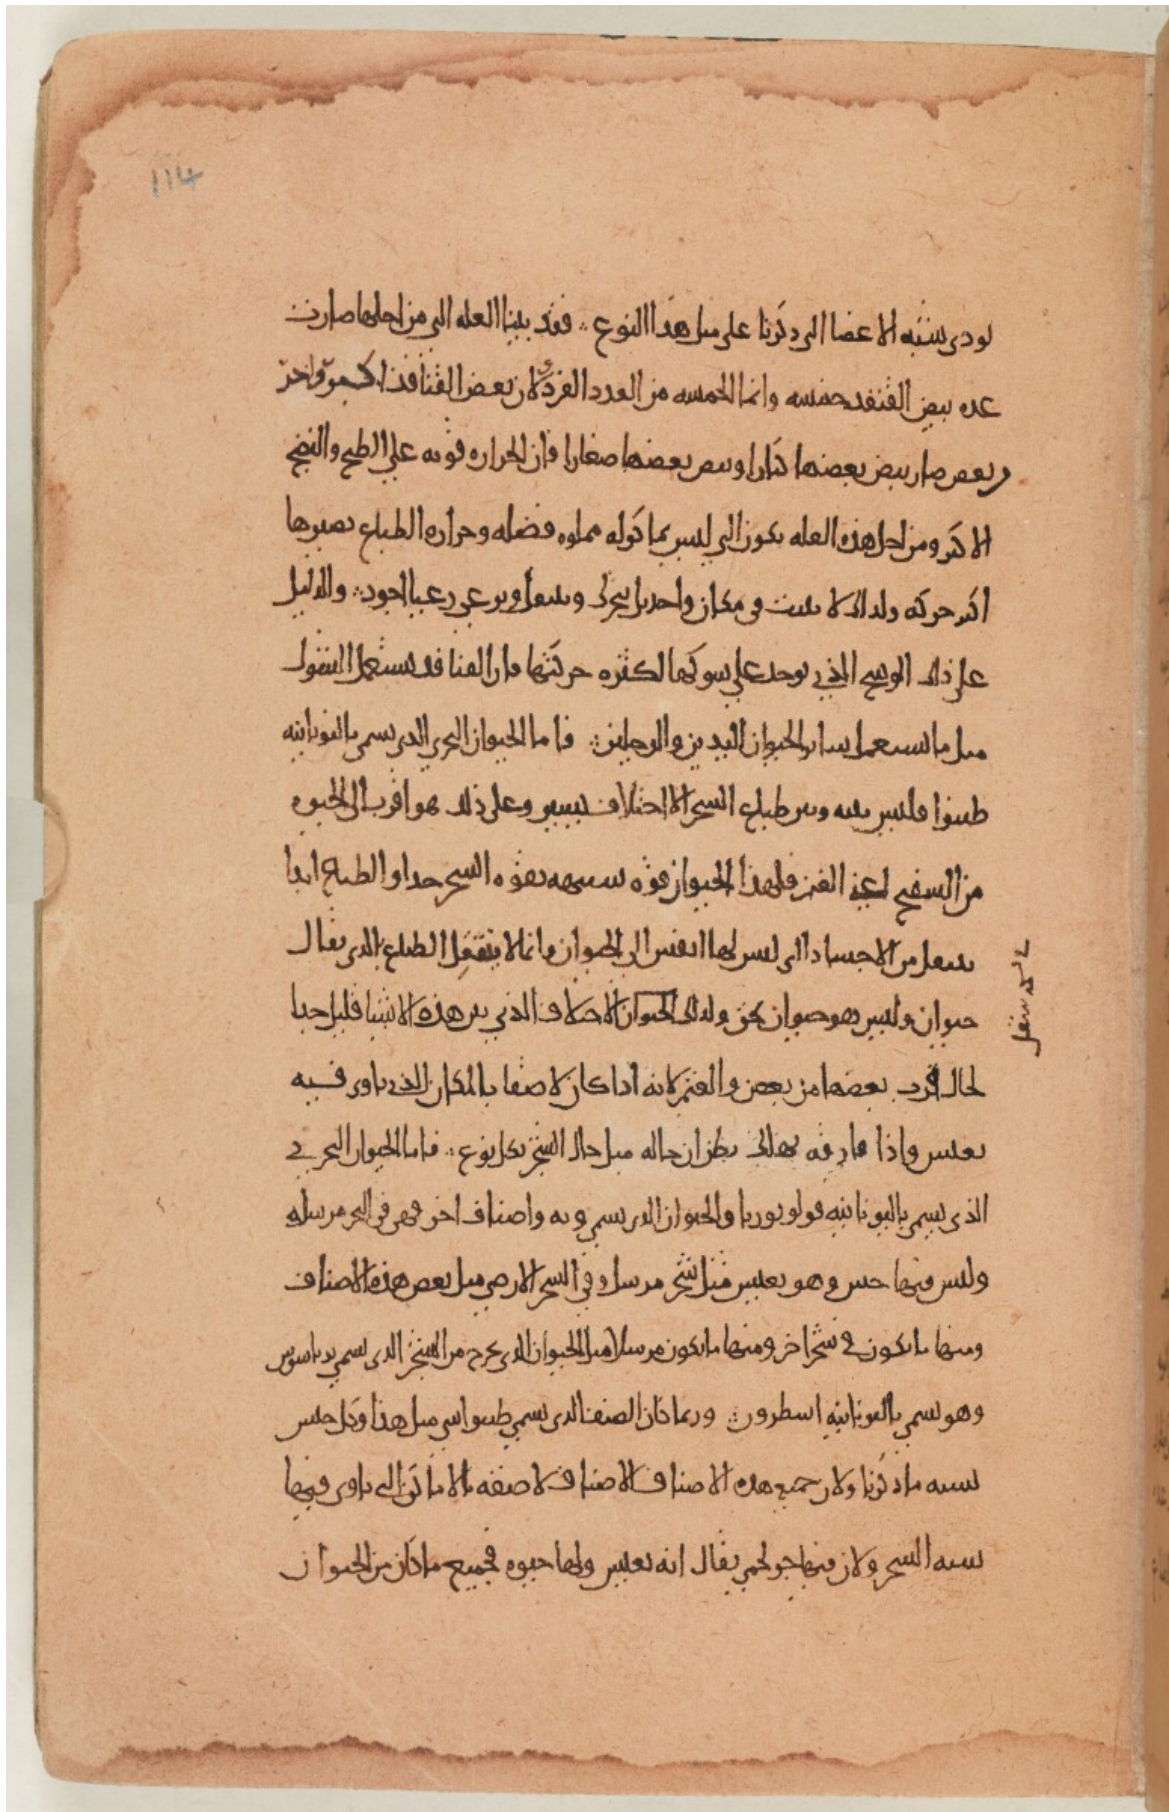 114
تودى شبه الاعضا التى ذكرنا على مثل هذا النوع ؞ فقد بينا العله التى من اجلها صارت
عده بيض القنفد خمسه وانما الخمسه من العدد الفرد لان بعض القنافذ اكبر واخر
وبعض صار بيض بعضها كبارا وبيض بعضها صغارا فان الحراره قويه على الطبخ والنضج
الاكثر ومن اجل هذه العله يكون التى ليس بماكوله مملوه فضله وحراره الطباع تصيرها
اكثر حركه ولذلك لا تثبت فى مكان واحد بل تتحرك وتنتقل وترعى رعيا اجود ؞ والدليل
على ذلك الوسخ الذي يوجد على شوكها لكثره حركتها فان القنافد تستعمل الشوك
مثل ما تستعمل سائر الحيوان اليدين والرجلين ؞ فاما الحيوان البحرى الذى يسمى باليونانيه
طيثوا فليس بينه وبين طباع الشجر الا اختلاف يسير وعلى ذلك هو اقرب الى الحيوه
من السفنج لعنى الغنم فلهذا الحيوان قوه شبيهه بقوه الشجر جدا والطباع ابدا
ينتقل من الاجساد التى ليس لها انفس الى الحيوان وانما لا ينتقل الطباع بالذى يقال
حيوان وليس هو حيوان بحق ولذلك الحيوان الاختلاف الذي بين هذه الاشيا قليل جدا
لحال قرب بعضها من بعض والغنم لانه اذا كان لاصقا بالمكان الذى ياوى فيه
يعيش واذا فارقه يهلك يظن ان حاله مثل حال الشجر بكل نوع ؞ فاما الحيوان البحرى
الذى يسمى باليونانيه قولوثوريا والحيوان الذى يسمى ويه واصناف اخر فهى فى البحر مرسله
وليس فيها حس وهو يعيش مثل شجر مرسل وفى الشجر الارضى مثل بعض هذه الاصناف
ومنها ما يكون فى شجر اخر ومنها ما يكون مرسلا مثل الحيوان الذى يخرج من الشجر الذى يسمى
وهو يسمى باليونانيه اسطرون ؞ وربما كان الصنف الذى يسمى طيثوا سى مثل هذا وكل جنس
يشبه ما ذكرنا ولان جميع هذه الاصناف الاصناف لاصقه بالاماكن التى ياوى فيها
يشبه الشجر ولان فيها جزو لحمى يقال انه يعيش ولها حيوه فجميع ما كان من الحيوان